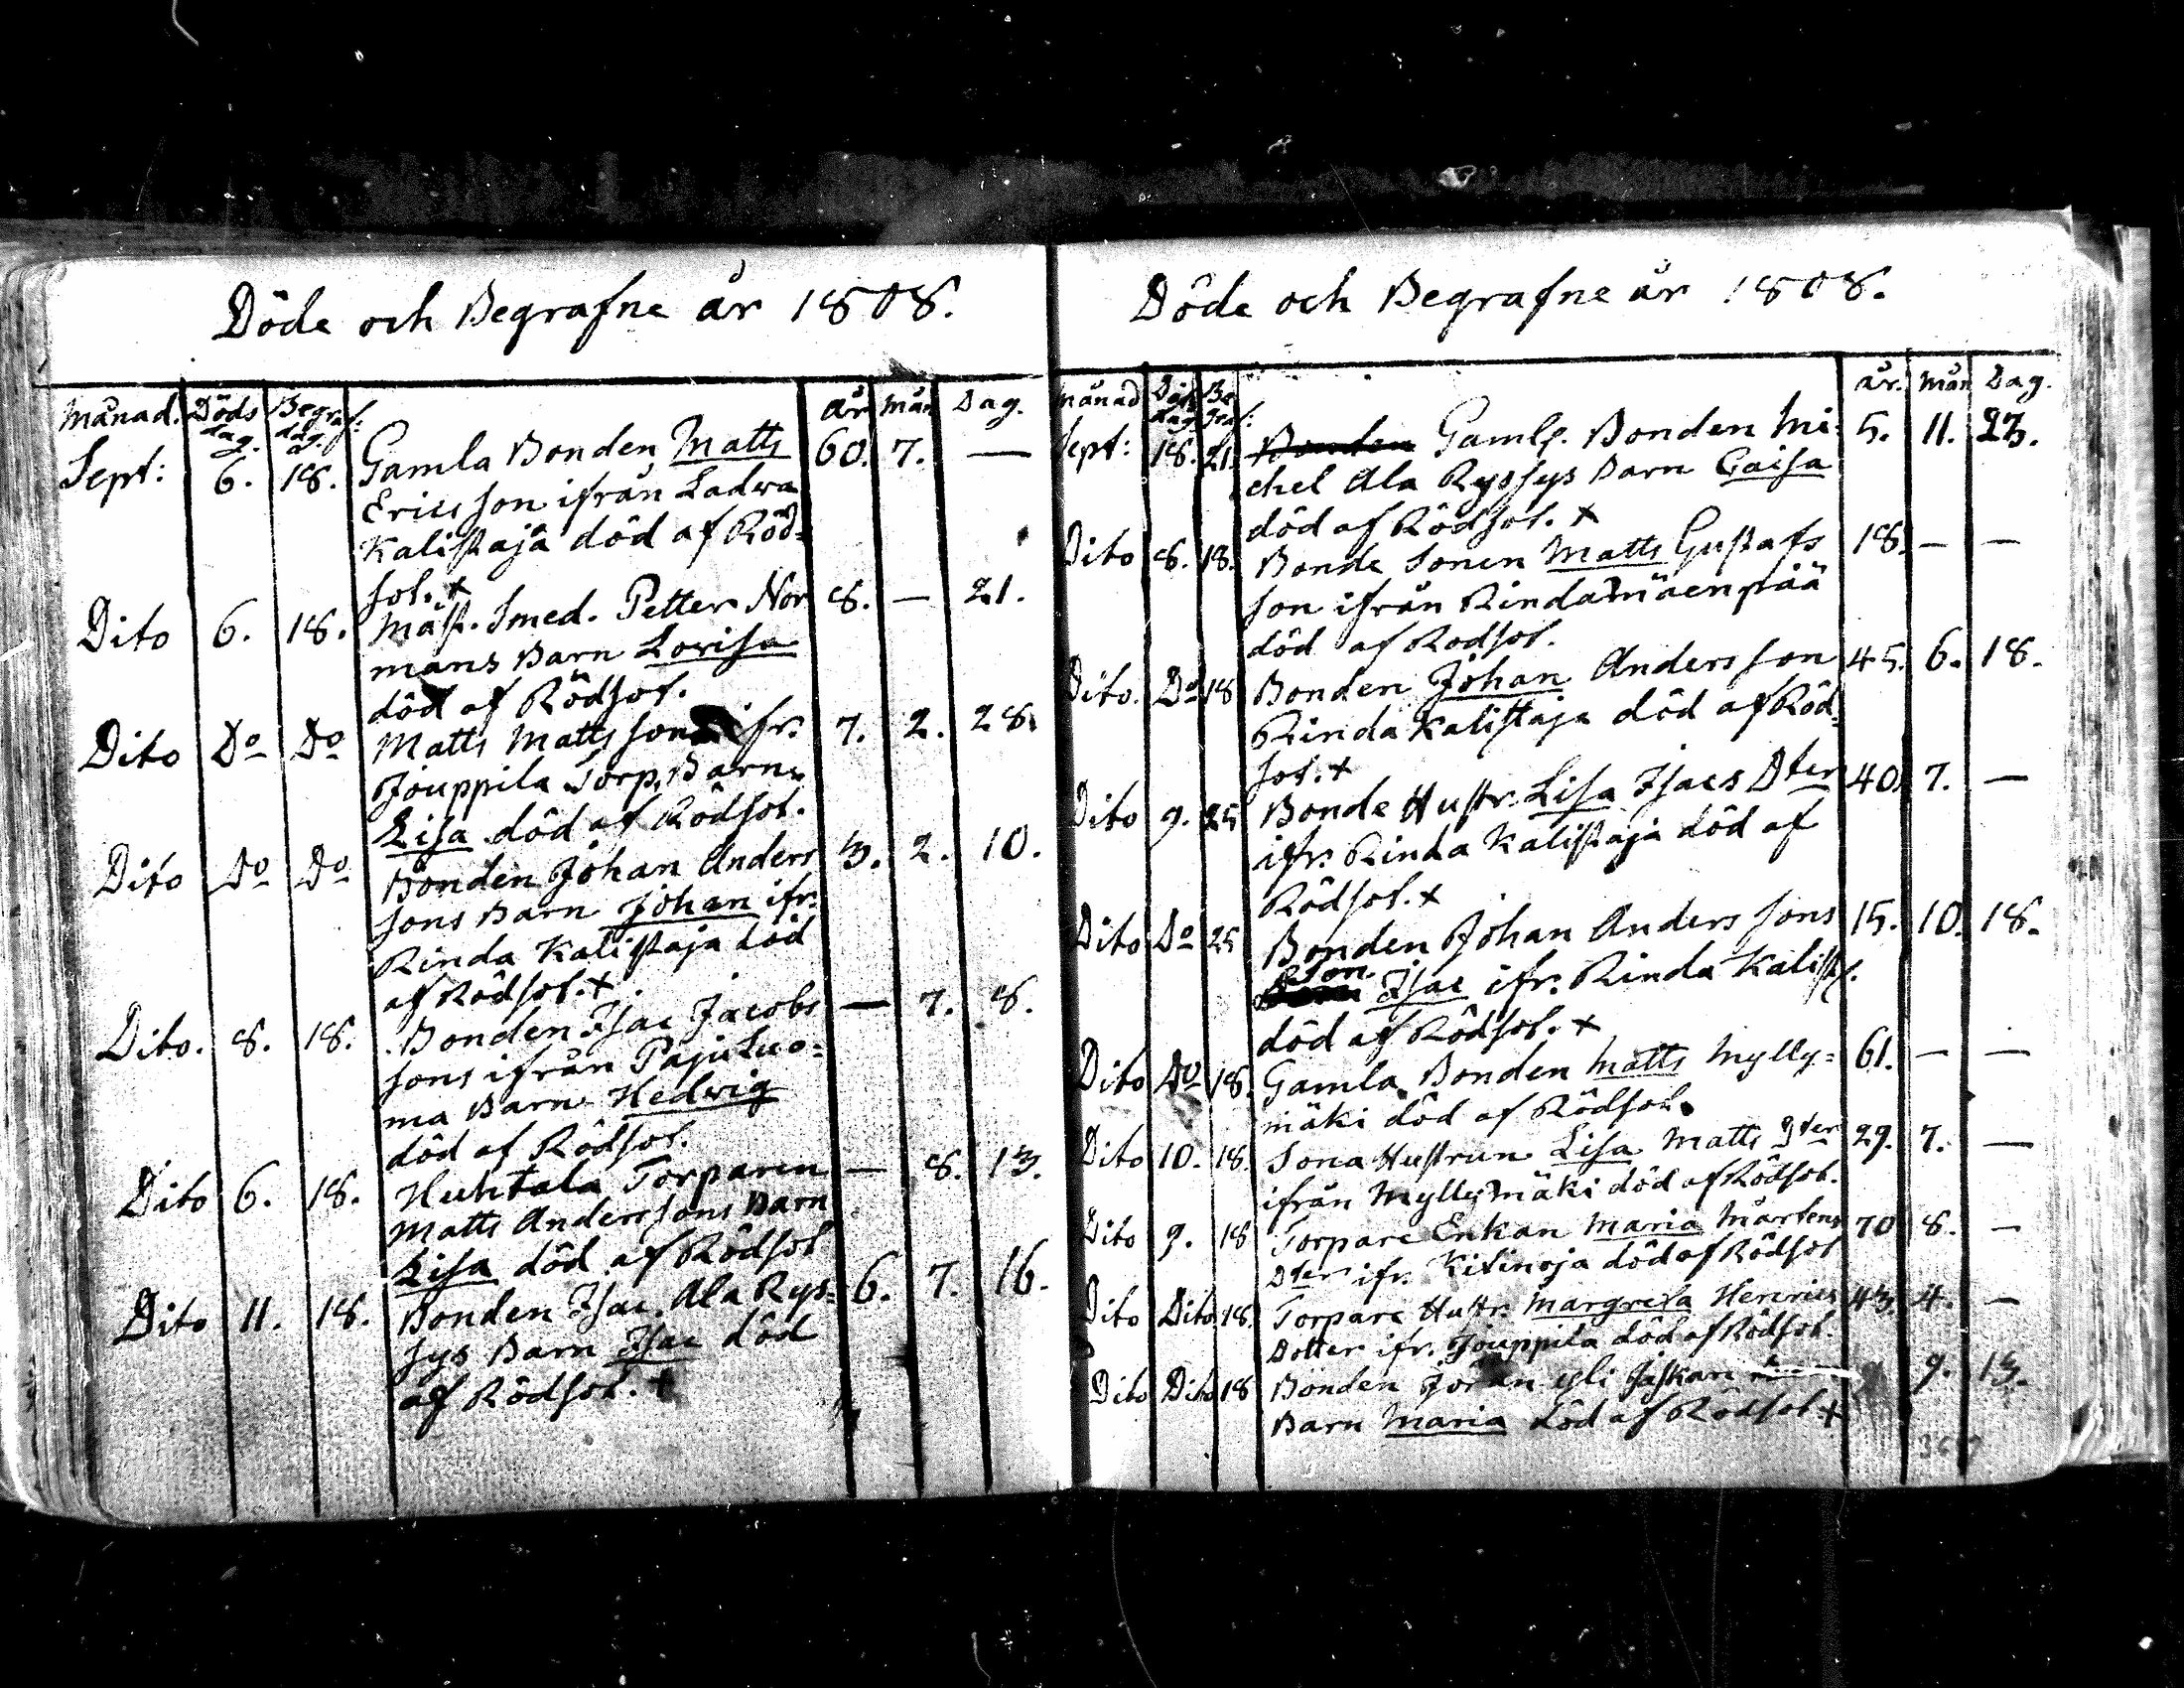 Döde och Begrafne år 1808.
Månad. Döds dag. Begraf: dag. år Mån Dag.
Sept: 6. 18. Gamla Bonden Matts 60. 7. —
Ericsson ifrån Ladwa
Kalistaja död af Röd=
sot. +
Dito 6. 18. Mäst. Smed. Petter Nor 8. — 21.
mans Barn Lovisa
död af Rödsot.
Dito Do Do Matts Mattsson ifr: 7. 2. 28.
Jouppila Torp. Barn
Lisa död af Rödsot.
Dito Do Do Bonden Johan Anders 3. 2. 10.
sons Barn Johan ifr:
Rinda Kalistaja död
af Rödsot. +
Dito. 8. 18. Bonden Isac Jacobs — 7. 8.
sons ifrån Pajuluo=
ma Barn Hedwig
död af Rödsot.
Dito 6. 18. Huhtala Torparen — 8. 13.
Matts Anderssons Barn
Lisa död af Rödsot
Dito 11. 18. Bonden Isac Ala Rys= 6. 7. 16.
sys Barn Isac död
af Rödsot. +
Döde och Begrafne år 1808.
Månad Döds dag Be graf: år. Mån Dag.
Sept: 18. 21. Bonden Gaml. Bonden Mi= 5. 11. 23.
chel Ala Ryssys Barn Caisa
död af Rödsot. +
Dito 8. 18. Bonde Sonen Matts Gustafs 18. — —
son ifrån Rindamäenpää
död af Rodsot.
Dito. Do 18 Bonden Johan Andersson 45. 6. 18.
Rinda Kalistaja död af Röd=
sot. +
Dito 9. 25 Bonde Hustr. Lisa Isacs Dter 40. 7. —
ifr: Rinda Kalistaja död af
Rödsot. +
Dito Do 25 Bonden Johan Anders sons 15. 10. 18.
Son Isac ifr: Rinda Kalist.
död af Rödsot. +
Dito Do 18. Gamla Bonden Matts Mylly= 61. — —
mäki död af Rödsot.
Dito 10. 18. Sona Hustrun Lisa Matts Dter 29. 7. —
ifrån Myllymäki död af Rödsot.
Dito 9. 18 Torpare Enkan Maria Mårtens 70 8. —
Dter ifr. Kitinoja död af Rödsot
Dito Dito 18. Torpare Hustr. Margreta Henrics 43. 4. —
Dotter ifr. Jouppila död af Rödsot.
Dito Dito 18 Bonden Jöran yli Jaskari 9. 13.
Barn Maria död af Rödsot +